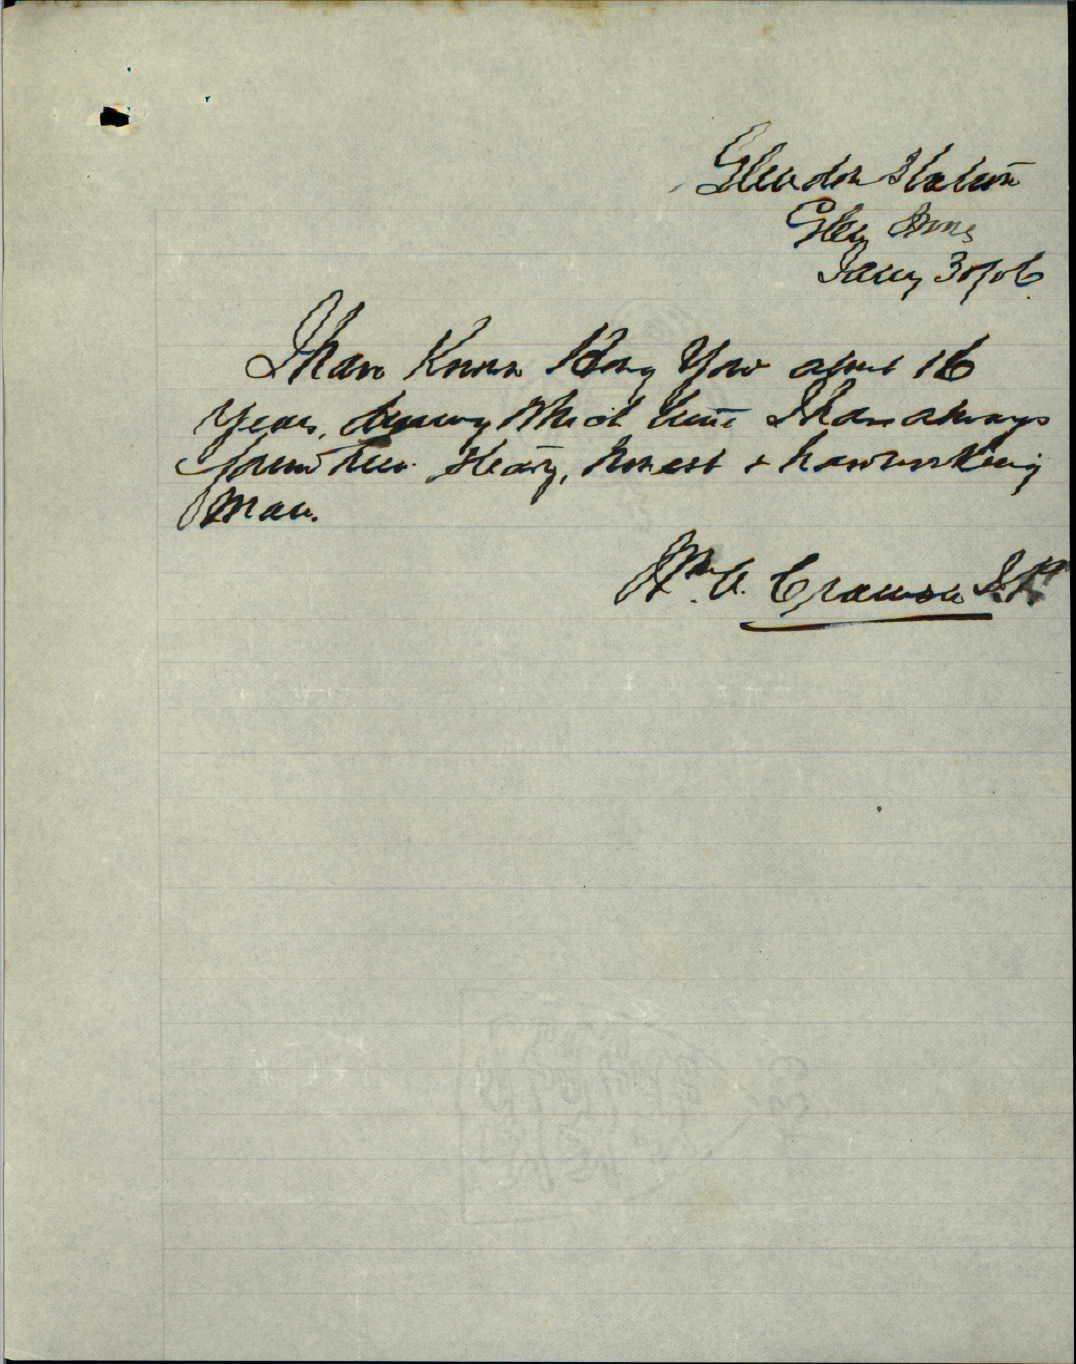 Glendon Station
Glen Innes
Jany 30/06
I have Known Hong Yow about 16
Years, during Which time I have always
found him Steady, honest & hardworking
Man.
Wm. A. Crawson J.P.